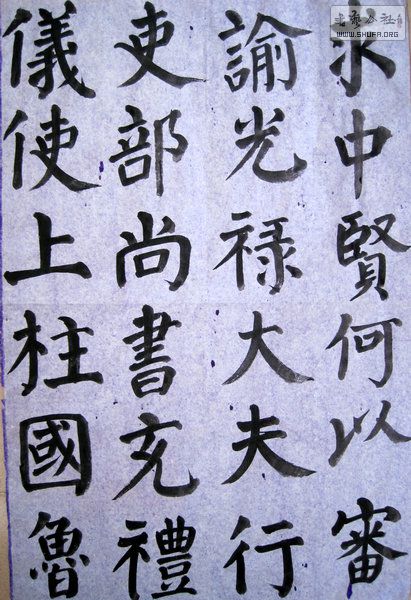 求中賢何以審
諭光禄大夫行
吏部尚書充禮
儀使上柱國魯
WWW.SHUFA.ORG